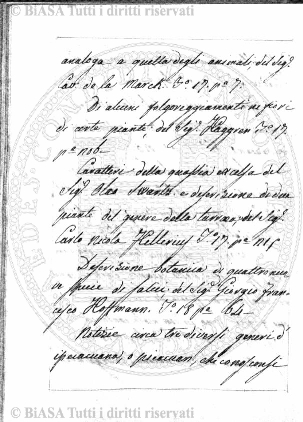 © BiASA Tutti i diritti riservati
analoga a quella degli animali, del Sig.r
Cav. de la Marck. T.o 17. p.a 7.
Di alcuni folgoreggiamenti ne' fiori
di certe piante del Sig.r Haggren T.o 17
p.a 106
Carattere della quassia excelsa del
Sig.r Olao Swartz e descrizione di due
piante del genere della del Sig.r
Carlo Nicola Hellenius T.o 17. p.a 115
Descrizione botanica di quattro nuo
ve specie di salci del Sig.r Giorgio Fran-
cesco Hoffmann. T.o 18 p.a 64
Notizie circa tre diversi generi d'
ipecacuana, o che conosconsi
© BiASA Tutti i diritti riservati